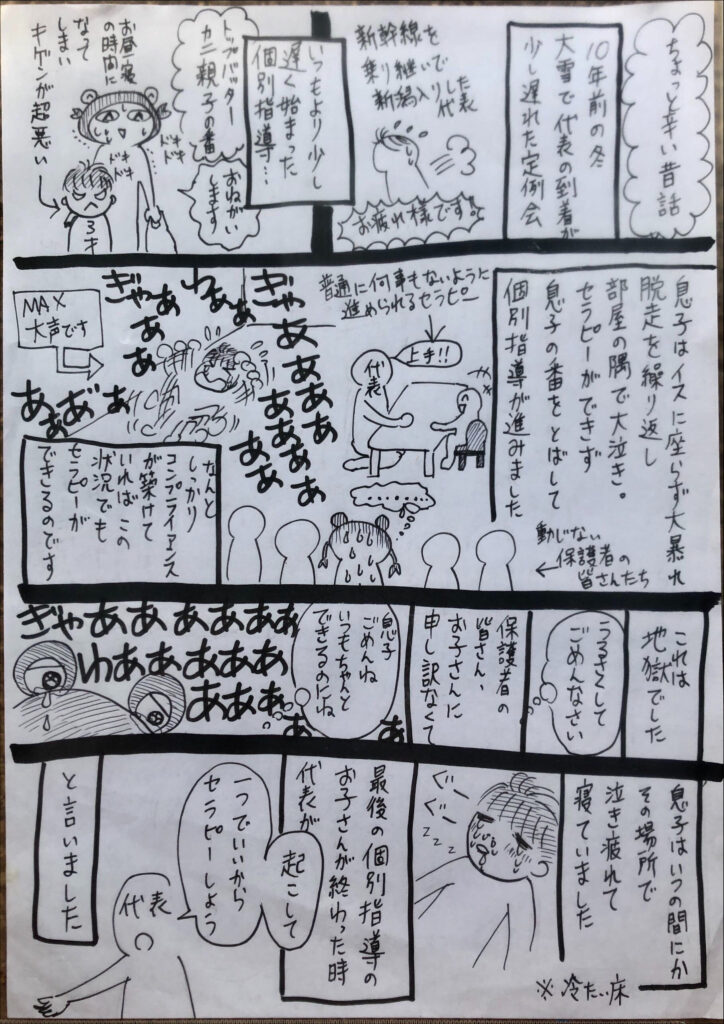 ちょっと辛い昔話
10年前の冬
大雪で代表の到着が
少し遅れた定例会
新幹線を
乗り継いで
新潟入りした
代表
お疲れ様です!
いつもより少し
遅く始まった
個別指導…
トップバッター
カニ親子の番
おねがい
します
ドキ
ドキ
ドキ
ドキ
お昼寝
の時間に
なって
しまい
キゲンが超悪い
3才
息子はイスに座らず大暴れ
脱走を繰り返し
部屋の隅で大泣き。
セラピーができず
息子の番をとばして
個別指導が進みました
普通に何事もないように
進められるセラピー
上手!!
代表
動じない
保護者の
皆さんたち
………
ぎゃあああああ
ああああ
ああ
わぁぁぁ
ぎゃあぁぁ
あぁあ゛ぁ
あぁ
MAX
大声です
なんと
しっかり
コンプライアンス
が築けて
いればこの
状況でも
セラピーが
できるのです
これは
地獄でした
うるさくして
ごめんなさい
保護者の
皆さん、
お子さんに
申し訳なくて
息子
ごめんね
いつもちゃんと
できるのにね
ぎゃああああああぁ
わあああああ
あああ
あ
あ
息子はいつの間にか
その場所で
泣き疲れて
寝ていました
※冷たい床
ぐー
ぐー
zzz
最後の個別指導の
お子さんが終わった時
代表が
起こして
一つでいいから
セラピーしよう
代表
と言いました